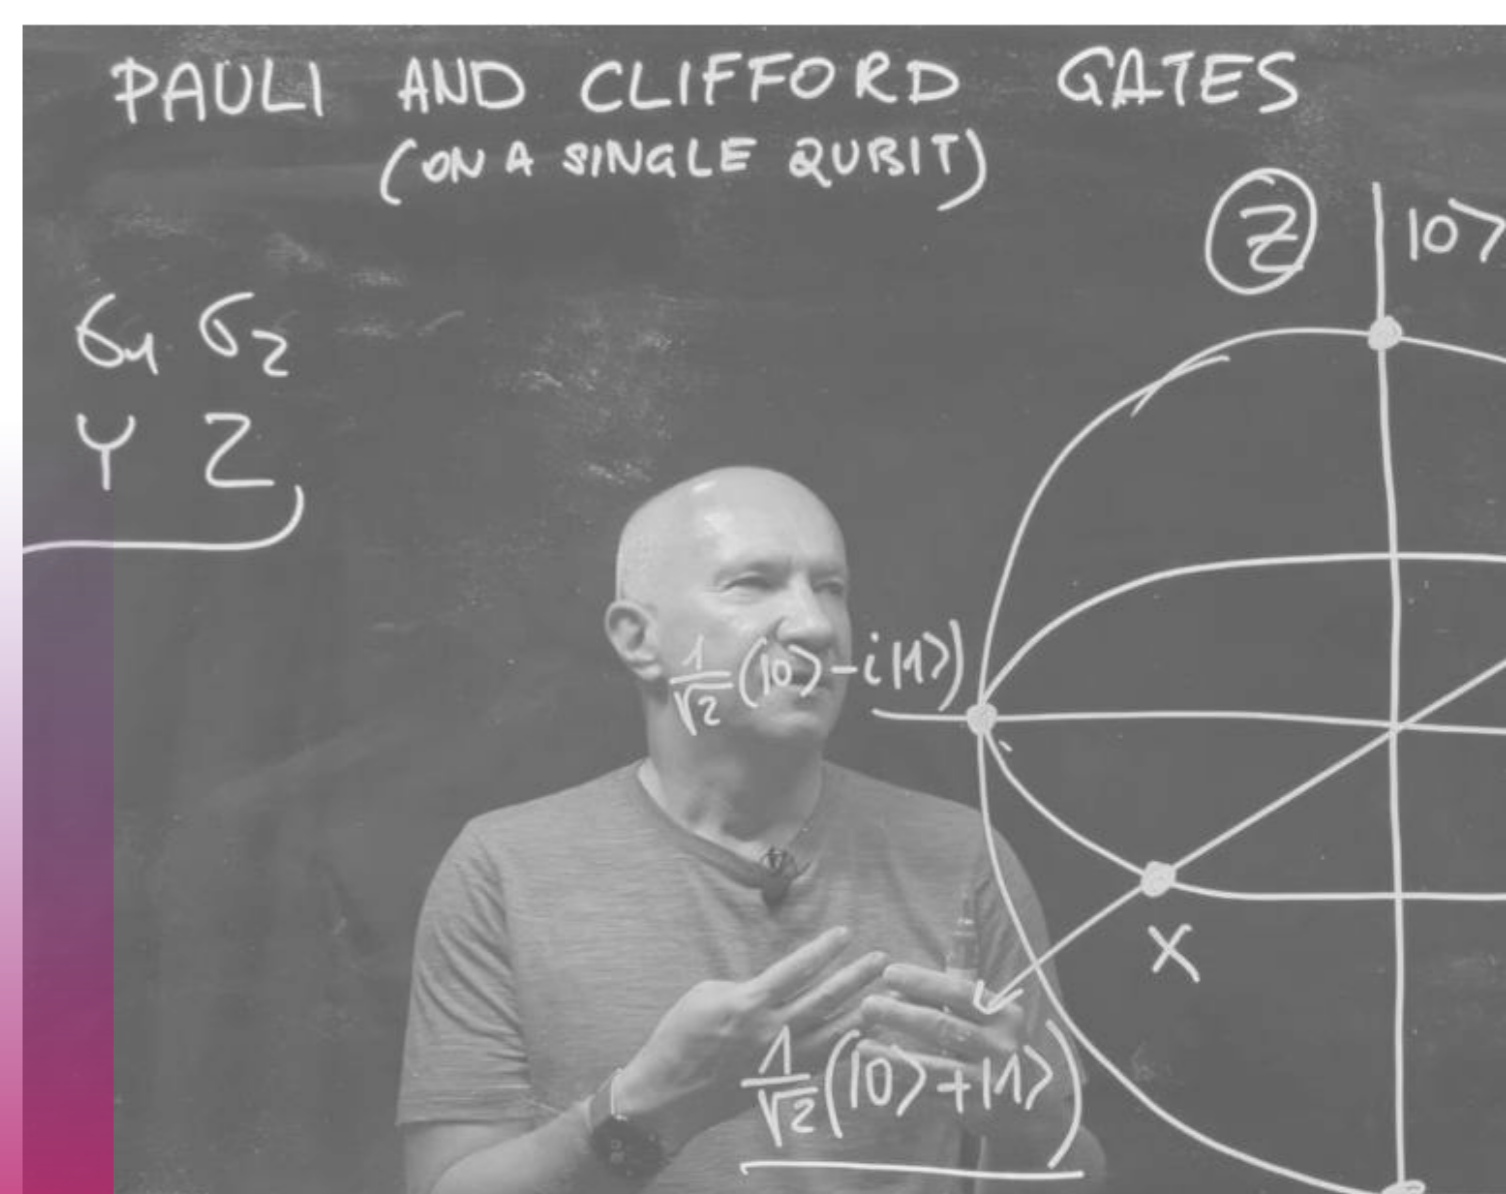 PAULI AND CLIFFORD GATES
(ON A SINGLE QUBIT)
Z |0>
σy σz
Y Z
1/√2 (|0> - i|1>)
X
1/√2 (|0> + |1>)